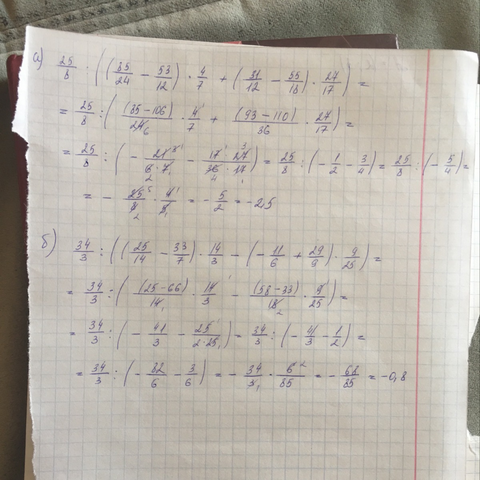 а) 25/8 · ((85/24 − 53/12) · 4/7 + (31/12 − 55/18) · 27/17) =
= 25/8 : ((85−106)/24 6 · 4/7 + (93−110)/36 · 27/17) =
= 25/8 : (− 21/6·7 − 17·27/36·17) = 25/8 : (− 1/2 − 3/4) = 25/8 : (− 5/4) =
= − 25/8 · 4/5 = − 5/2 = −2,5
б) 34/3 : ((25/14 − 33/7) · 14/3 − (− 11/6 + 29/9) · 9/25) =
= 34/3 : ((25−66)/14 · 14/3 − (58−33)/18 · 9/25) =
= 34/3 : (− 41/3 − 25/2·25) = 34/3 : (− 41/3 − 1/2) =
= 34/3 : (− 82/6 − 3/6) = − 34/3 · 6/85 = − 68/85 = −0,8